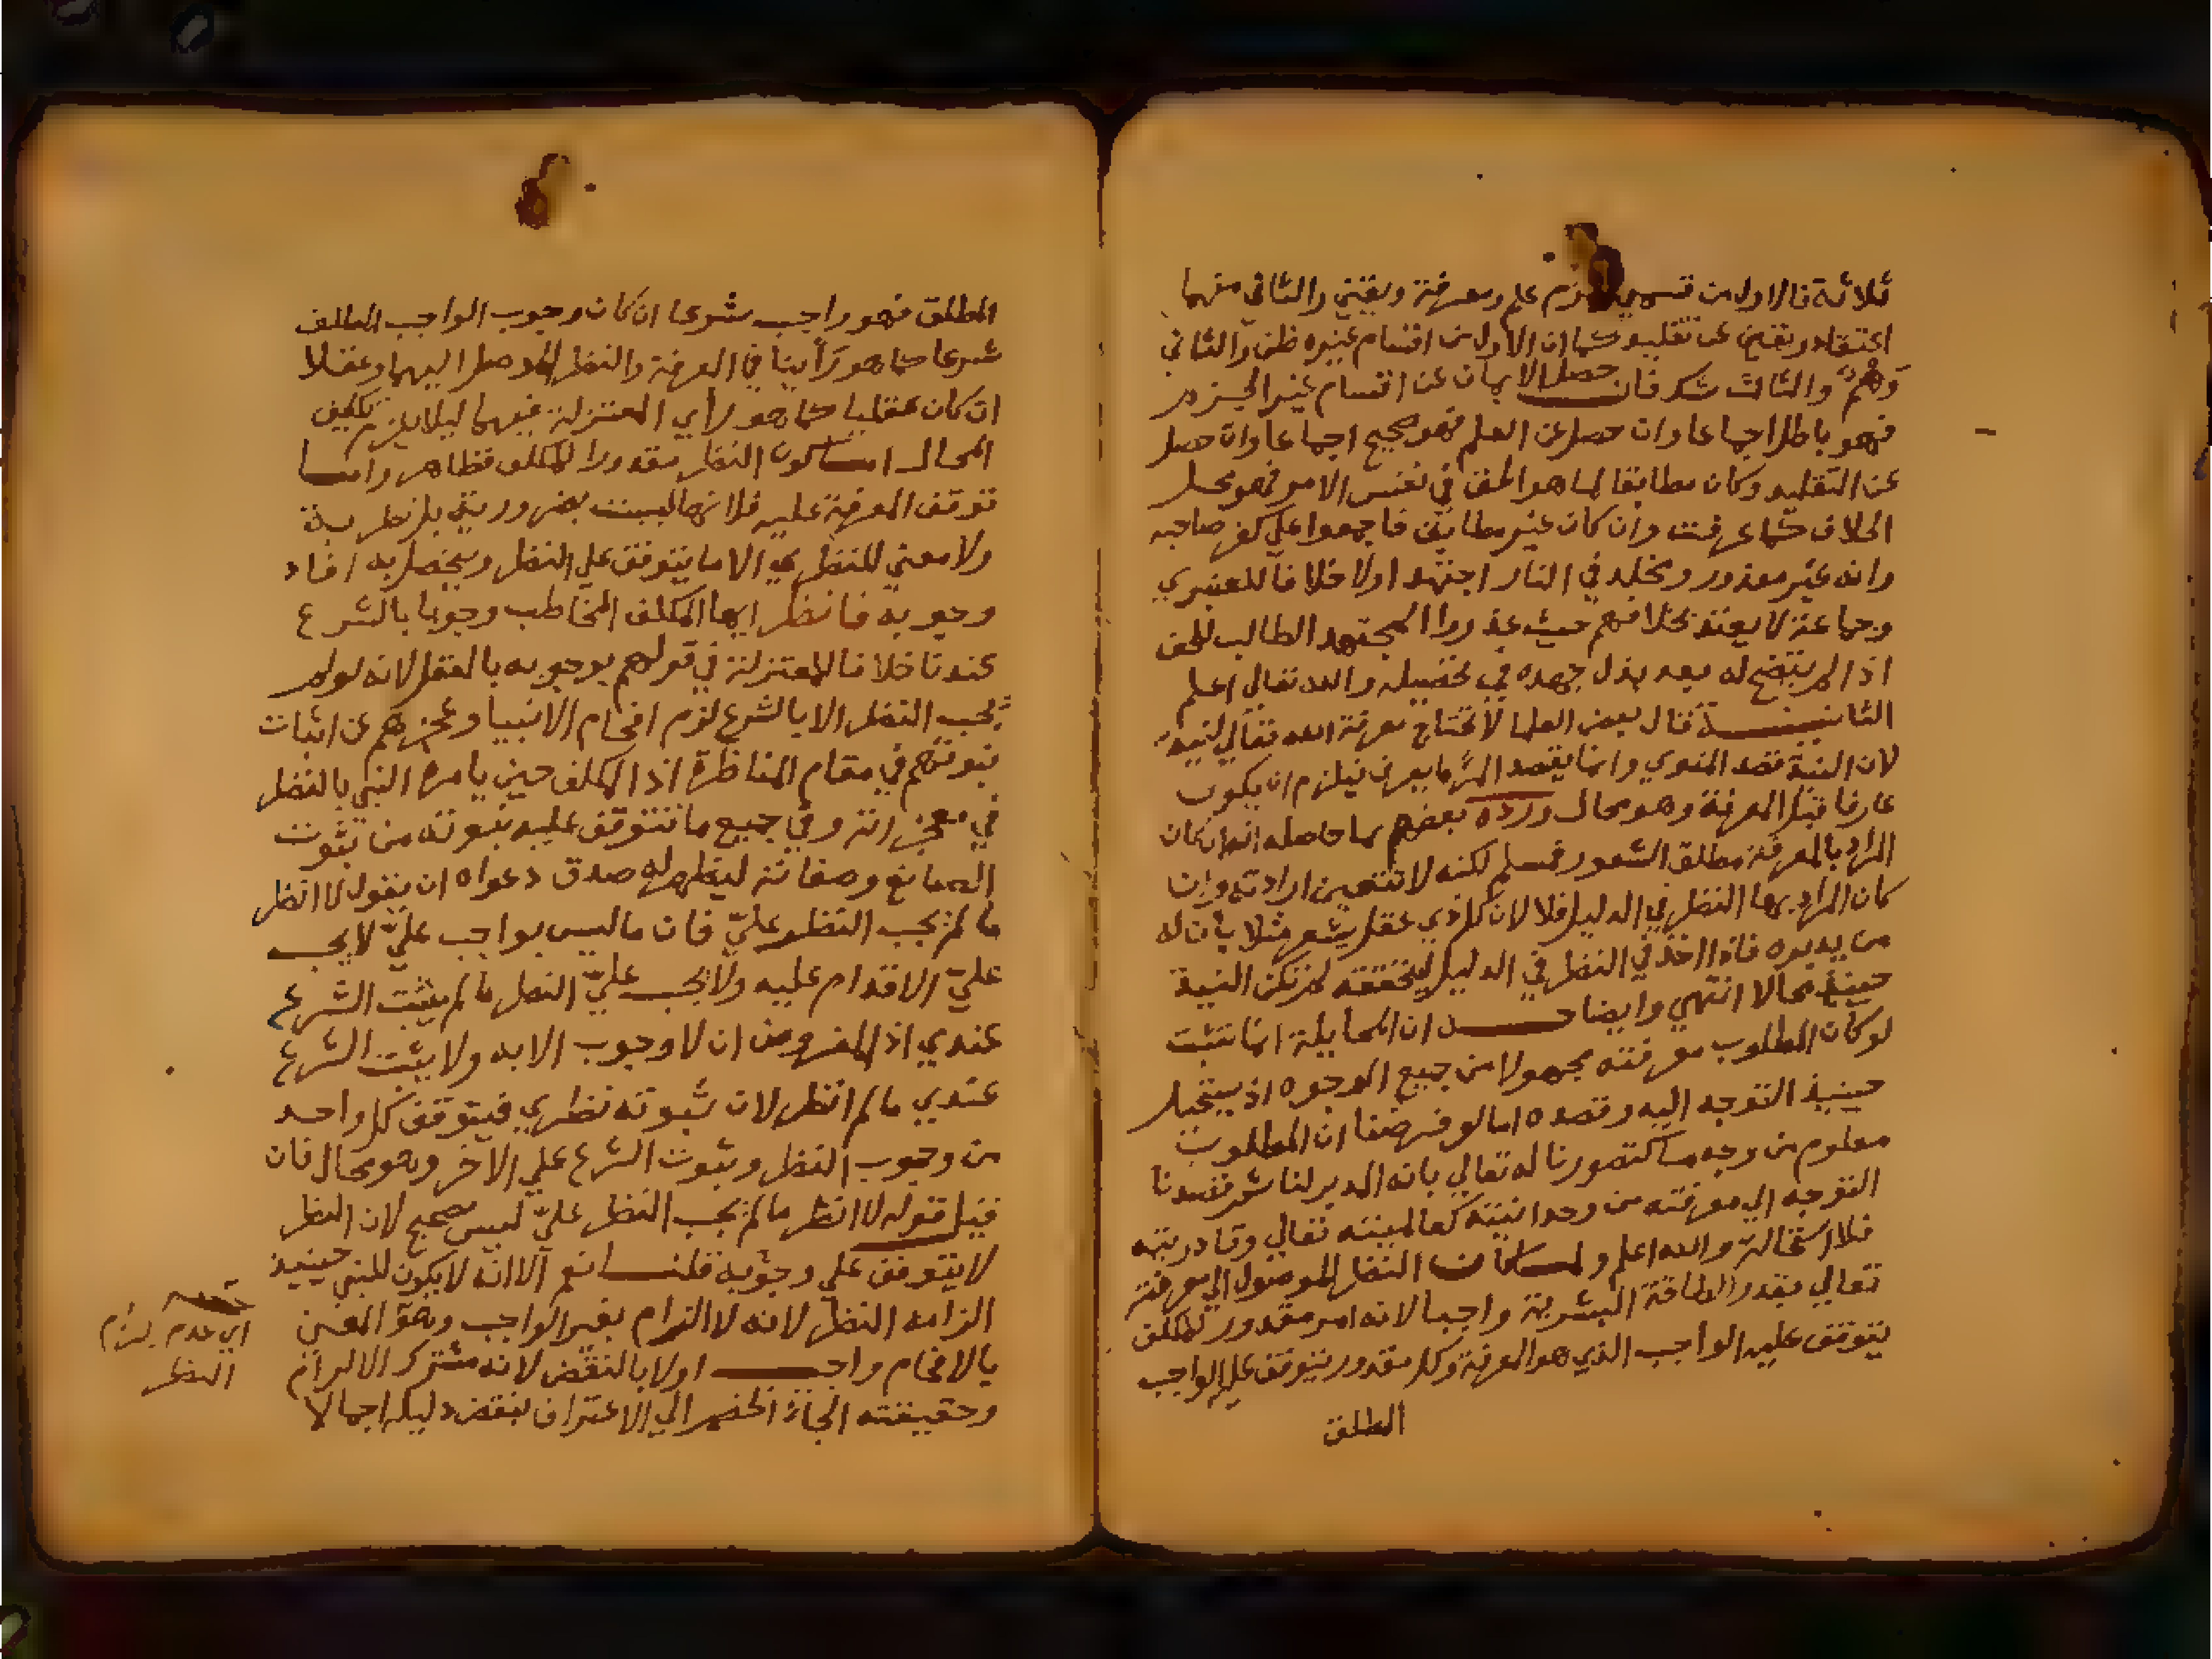 ثلاثة فالاول من قسمي الجزم علم ومعرفة ويقين والثاني منهما
اعتقاد ويقين عن تقليد كما ان الاول من اقسام غيره ظن والثاني
وَهْمٌ والثالث شك فان حصل الايمان عن اقسام غير الجزم
فهو باطل اجماعا وان حصل عن العلم فهو صحيح اجماعا وان حصل
عن التقليد وكان مطابقا لما هو الحق في نفس الامر فهو محل
الخلاف كما عرفت وان كان غير مطابق فاجمعوا علي كفر صاحبه
وانه غير معذور ومخلد في النار اجتهد اولا خلافا للعنبري
وجماعة لا يعتد بخلافهم حيث عذروا المجتهد الطالب للحق
اذا لم يتضح له بعد بذل جهده في تحصيله والله تعالي اعلم
الثانيـة قال بعض العلما لا تحتاج معرفة الله تعالي لنية
لان النية قصد المنوي وانما يقصد المرء ما يعرف فيلزم ان يكون
عارفا قبل المعرفة وهو محال ورده بعضهم بما حاصله انه ان كان
المراد بالمعرفة مطلق الشعور فمسلم لكنه لا تتعين ارادته وان
كان المراد بها النظر في الدليل فلا لان كل ذي عقل يشعر مثلا بأن له
من يدبره فاذا اخذ في النظر في الدليل ليحققه لم تكن النية
حينئذ محالا انتهي وايضا ان المحايلة انما تثبت
لو كان المطلوب معرفته مجهولا من جميع الوجوه اذ يستحيل
حينيذ التوجه اليه وقصده اما لو فرضنا ان المطلوب
معلوم من وجه ما كتصورنا له تعالي بانه المدبر لنا ثم قصدنا
التوجه الي معرفته من وحدانيته كعالميته تعالي وقادريته
فلا استحالة والله اعلم ولما كان النظر الموصول الي معرفته
تعالي بقدر الطاقة البشرية واجبا لانه امر مقدور للمكلف
يتوقف عليه الواجب الذي هو المعرفة وكل مقدور يتوقف عليه الواجب
المطلق
المطلق فهو واجب شرعا ان كان وجوب الواجب المطلق
شرعا كما هو رأينا في المعرفة والنظر الموصل اليها وعقلا
ان كان عقليا كما هو رأي المعتزلة فيهما ليلا يلزم تكليف
المحال امـا كون النظر مقدورا للمكلف فظاهر وامـا
توقف المعرفة عليه فلانها ليست بضروريتي بل نظرية
ولا معني للنظري الا ما يتوقف علي النظر ويتحصل به افاد
وجوبه فانظر ايها المكلف المخاطب وجوبا بالشرع
عندنا خلافا للمعتزلة في قولهم بوجوبه بالعقل لانه لو لم
يجب النظر الا بالشرع لزم افحام الانبيا وعجزهم عن اثبات
نبوتهم في مقام المناظرة اذ المكلف حين يامره النبي بالنظر
في معجزته وفي جميع ما تتوقف عليه نبوته من ثبوت
الصانع وصفاته ليظهر له صدق دعواه ان يقول لا انظر
ما لم يجب النظر عليّ فان ما ليس بواجب عليّ لا يجب
عليّ الاقدام عليه ولا يجب عليّ النظر ما لم يثبت الشرع
عندي اذ المفروض ان لا وجوب الا به ولا يثبت الشرع
عندي ما لم انظر لان ثبوته نظري فيتوقف كل واحد
من وجوب النظر وثبوت الشرع علي الاخر وهو محال فان
قيل قوله لا انظر ما لم يجب النظر عليّ ليس صحيح لان النظر
لا يتوقف علي وجوبه قلنـا نعم الا انه لا يكون للنبي حينيذ
الزامه النظر لانه لا الزام بغير الواجب وهو المعني
بالافحام واجـب اولا بالنقض لانه مشترك الالزام
وحقيقته الجاء الخصم الي الاعتراف بنقض دليله اجمالا
اي عدم لزام
النظر